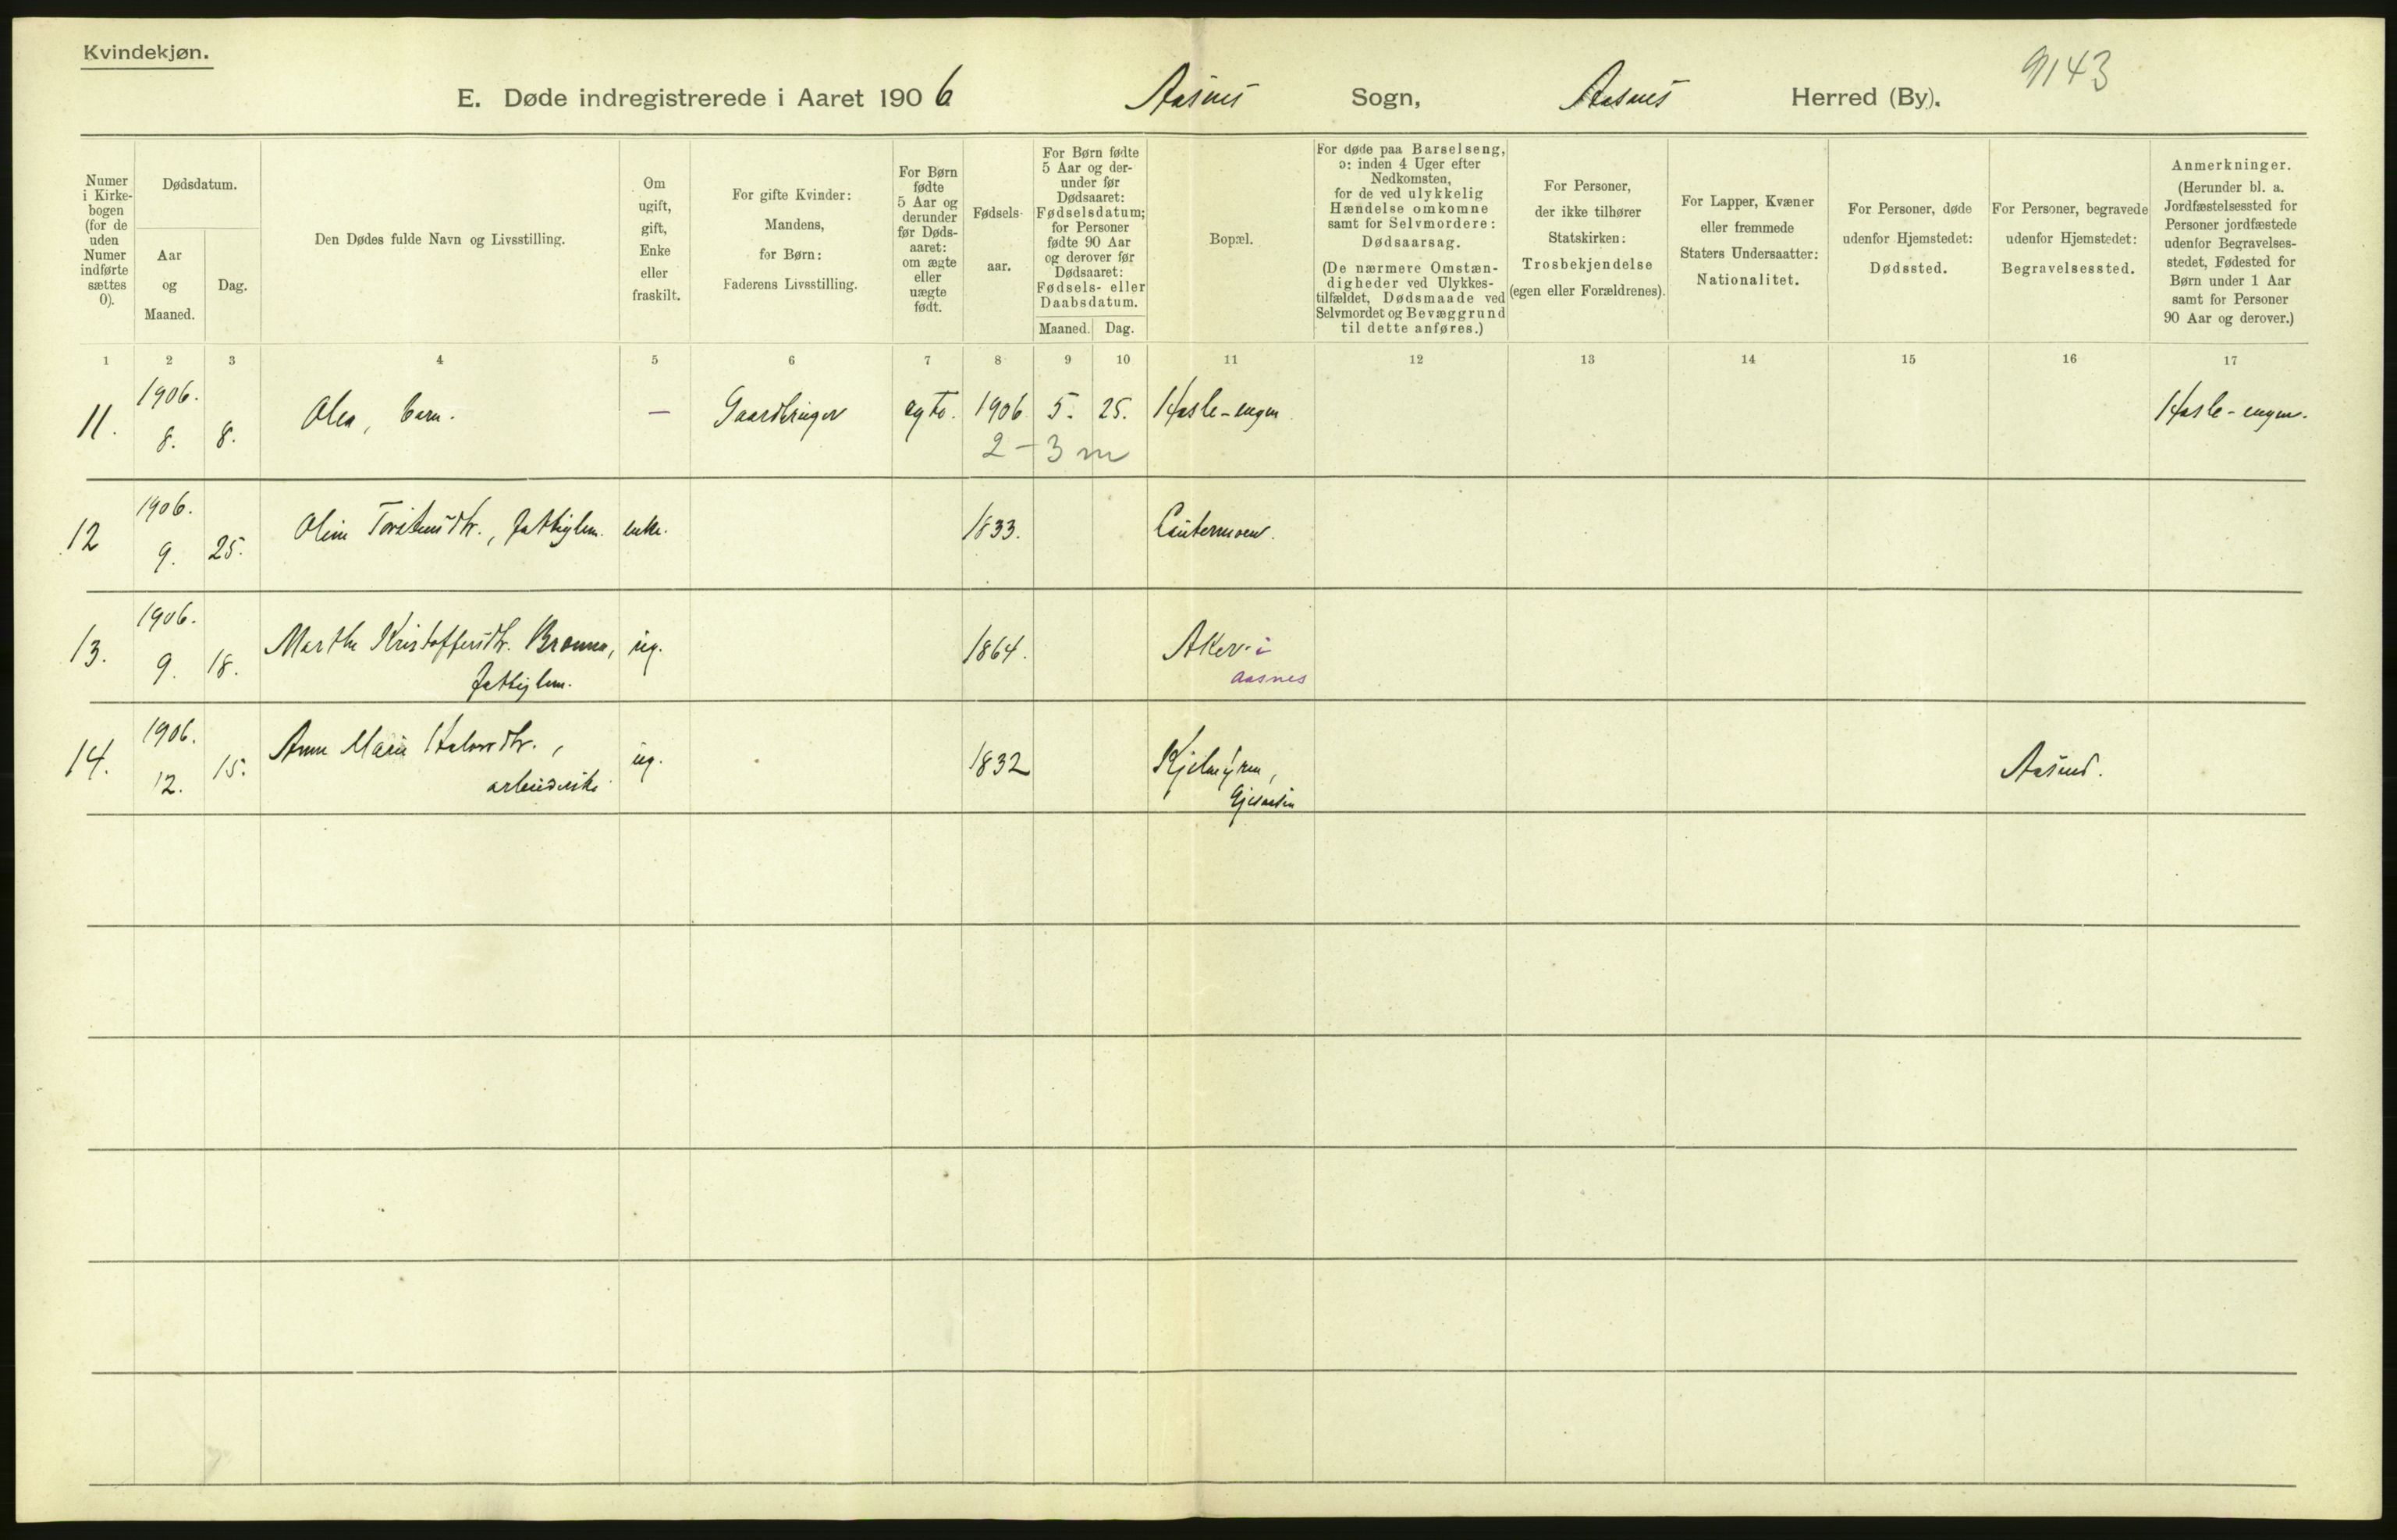 Kvindekjøn.
E. Døde indregistrerede i Aaret 1906 Aasnes Sogn, Aasnes Herred (By). 9143
Numer i Kirke-bogen (for de uden Numer indførte sættes 0).
Dødsdatum.
Aar og Maaned.
Dag.
Den Dødes fulde Navn og Livsstilling.
Om ugift, gift, Enke eller fraskilt.
For gifte Kvinder: Mandens, for Børn: Faderens Livsstilling.
For Børn fødte 5 Aar og derunder før Døds-aaret: om ægte eller uægte født.
Fødsels-aar.
For Børn fødte 5 Aar og der-under før Dødsaaret: Fødselsdatum; for Personer fødte 90 Aar og derover før Dødsaaret: Fødsels- eller Daabsdatum.
Maaned. Dag.
Bopæl.
For døde paa Barselseng, ɔ: inden 4 Uger efter Nedkomsten, for de ved ulykkelig Hændelse omkomne samt for Selvmordere: Dødsaarsag.
(De nærmere Omstæn-digheder ved Ulykkes-tilfældet, Dødsmaade ved Selvmordet og Bevæggrund til dette anføres.)
For Personer, der ikke tilhører Statskirken: Trosbekjendelse (egen eller Forældrenes).
For Lapper, Kvæner eller fremmede Staters Undersaatter: Nationalitet.
For Personer, døde udenfor Hjemstedet: Dødssted.
For Personer, begravede udenfor Hjemstedet: Begravelsessted.
Anmerkninger. (Herunder bl. a. Jordfæstelsessted for Personer jordfæstede udenfor Begravelses-stedet, Fødested for Børn under 1 Aar samt for Personer 90 Aar og derover.)
1 2 3 4 5 6 7 8 9 10 11 12 13 14 15 16 17
11. 1906. 8. 8. Olea, barn. — Gaardbruger ægte. 1906 5. 25. Hasle-engen Hasle-engen.
2-3 m
12 1906. 9. 25. Oline Torstensdtr., fattiglem. enke. 1833.
13. 1906. 9. 18. Marthe Kristoffersdtr. ug. 1864. Aker i
fattiglem. Aasnes
14. 1906. 12. 15. Anne Marie Halvorsdtr., ug. 1832 Aasnes.
arbeiderske